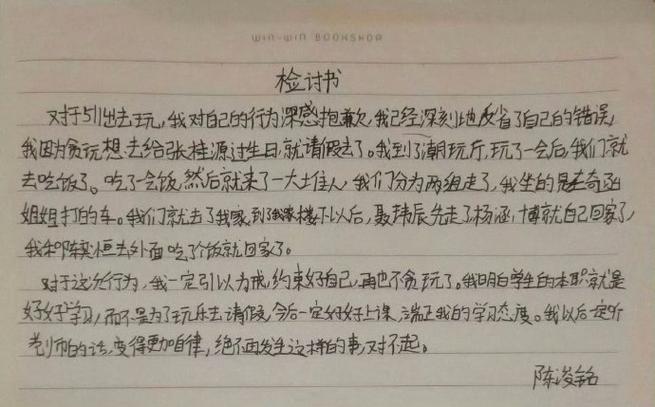 WIN-WIN BOOKSHOP
检讨书
对于511出去玩,我对自己的行为深感抱歉,我已经深刻地反省了自己的错误,
我因为贪玩想去给张桂源过生日,就请假去了。我到了潮玩厅,玩了一会后,我们就
去吃饭了。吃了会饭,然后就来了一大堆人,我们分为两组走了,我坐的是左奇函
姐姐打的车。我们就去了我家,到了我家楼下以后,聂玮辰先走了杨涵,博就自己回家了,
我和陈奕恒去外面吃了个饭就回家了。
对于这次行为,我一定引以为戒,约束好自己,再也不贪玩了。我明白学生的本职就是
好好学习,而不是为了玩乐去请假,今后一定好好上课,端正我的学习态度。我以后一定听
老师的话,变得更加自律,绝不再发生这样的事,对不起。
陈浚铭